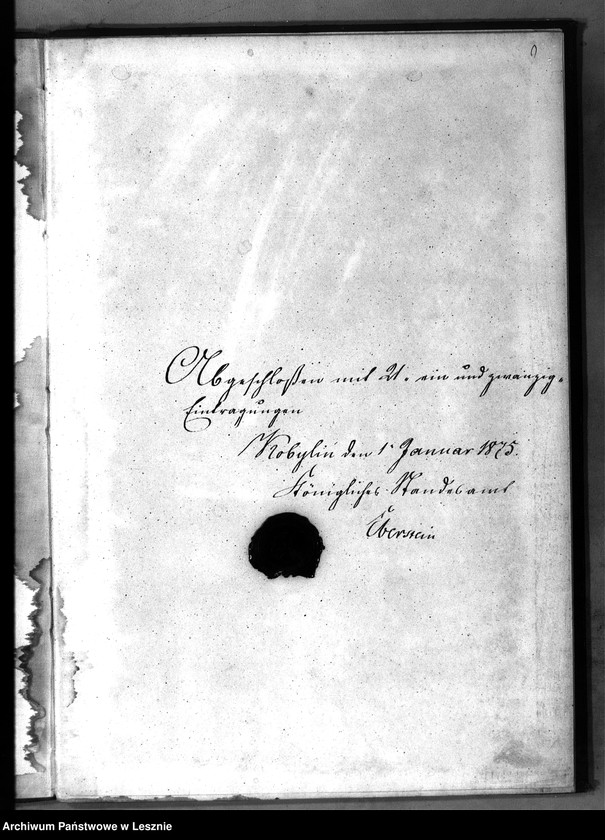 Abgeschloßen mit 21. ein und zwanzig-
Eintragungen
Kobylin den 1. Januar 1875.
Königliches Standesamt
Eberstein
Archiwum Państwowe w Lesznie